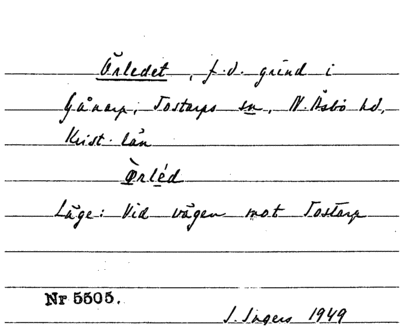 Örledet, f.d. grind i
Gånarp, Tostarps sn, N. Åsbo hd,
Krist. län
Ö̀rléd
Läge: Vid vägen mot Tostarp
Nr 5505.
I. Ingers 1949